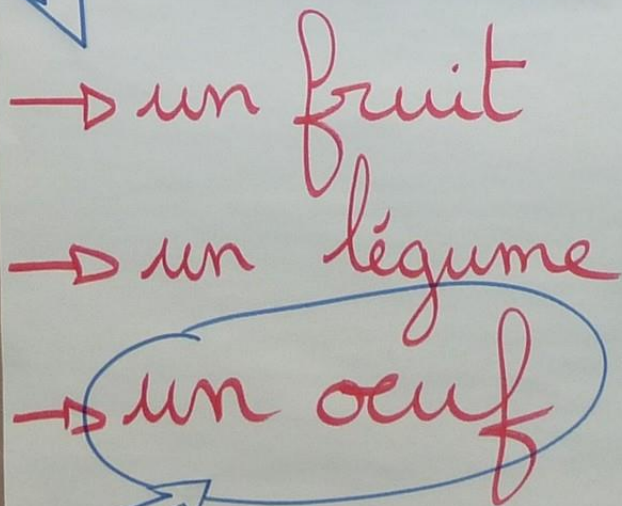 → un fruit
→ un légume
→ un œuf